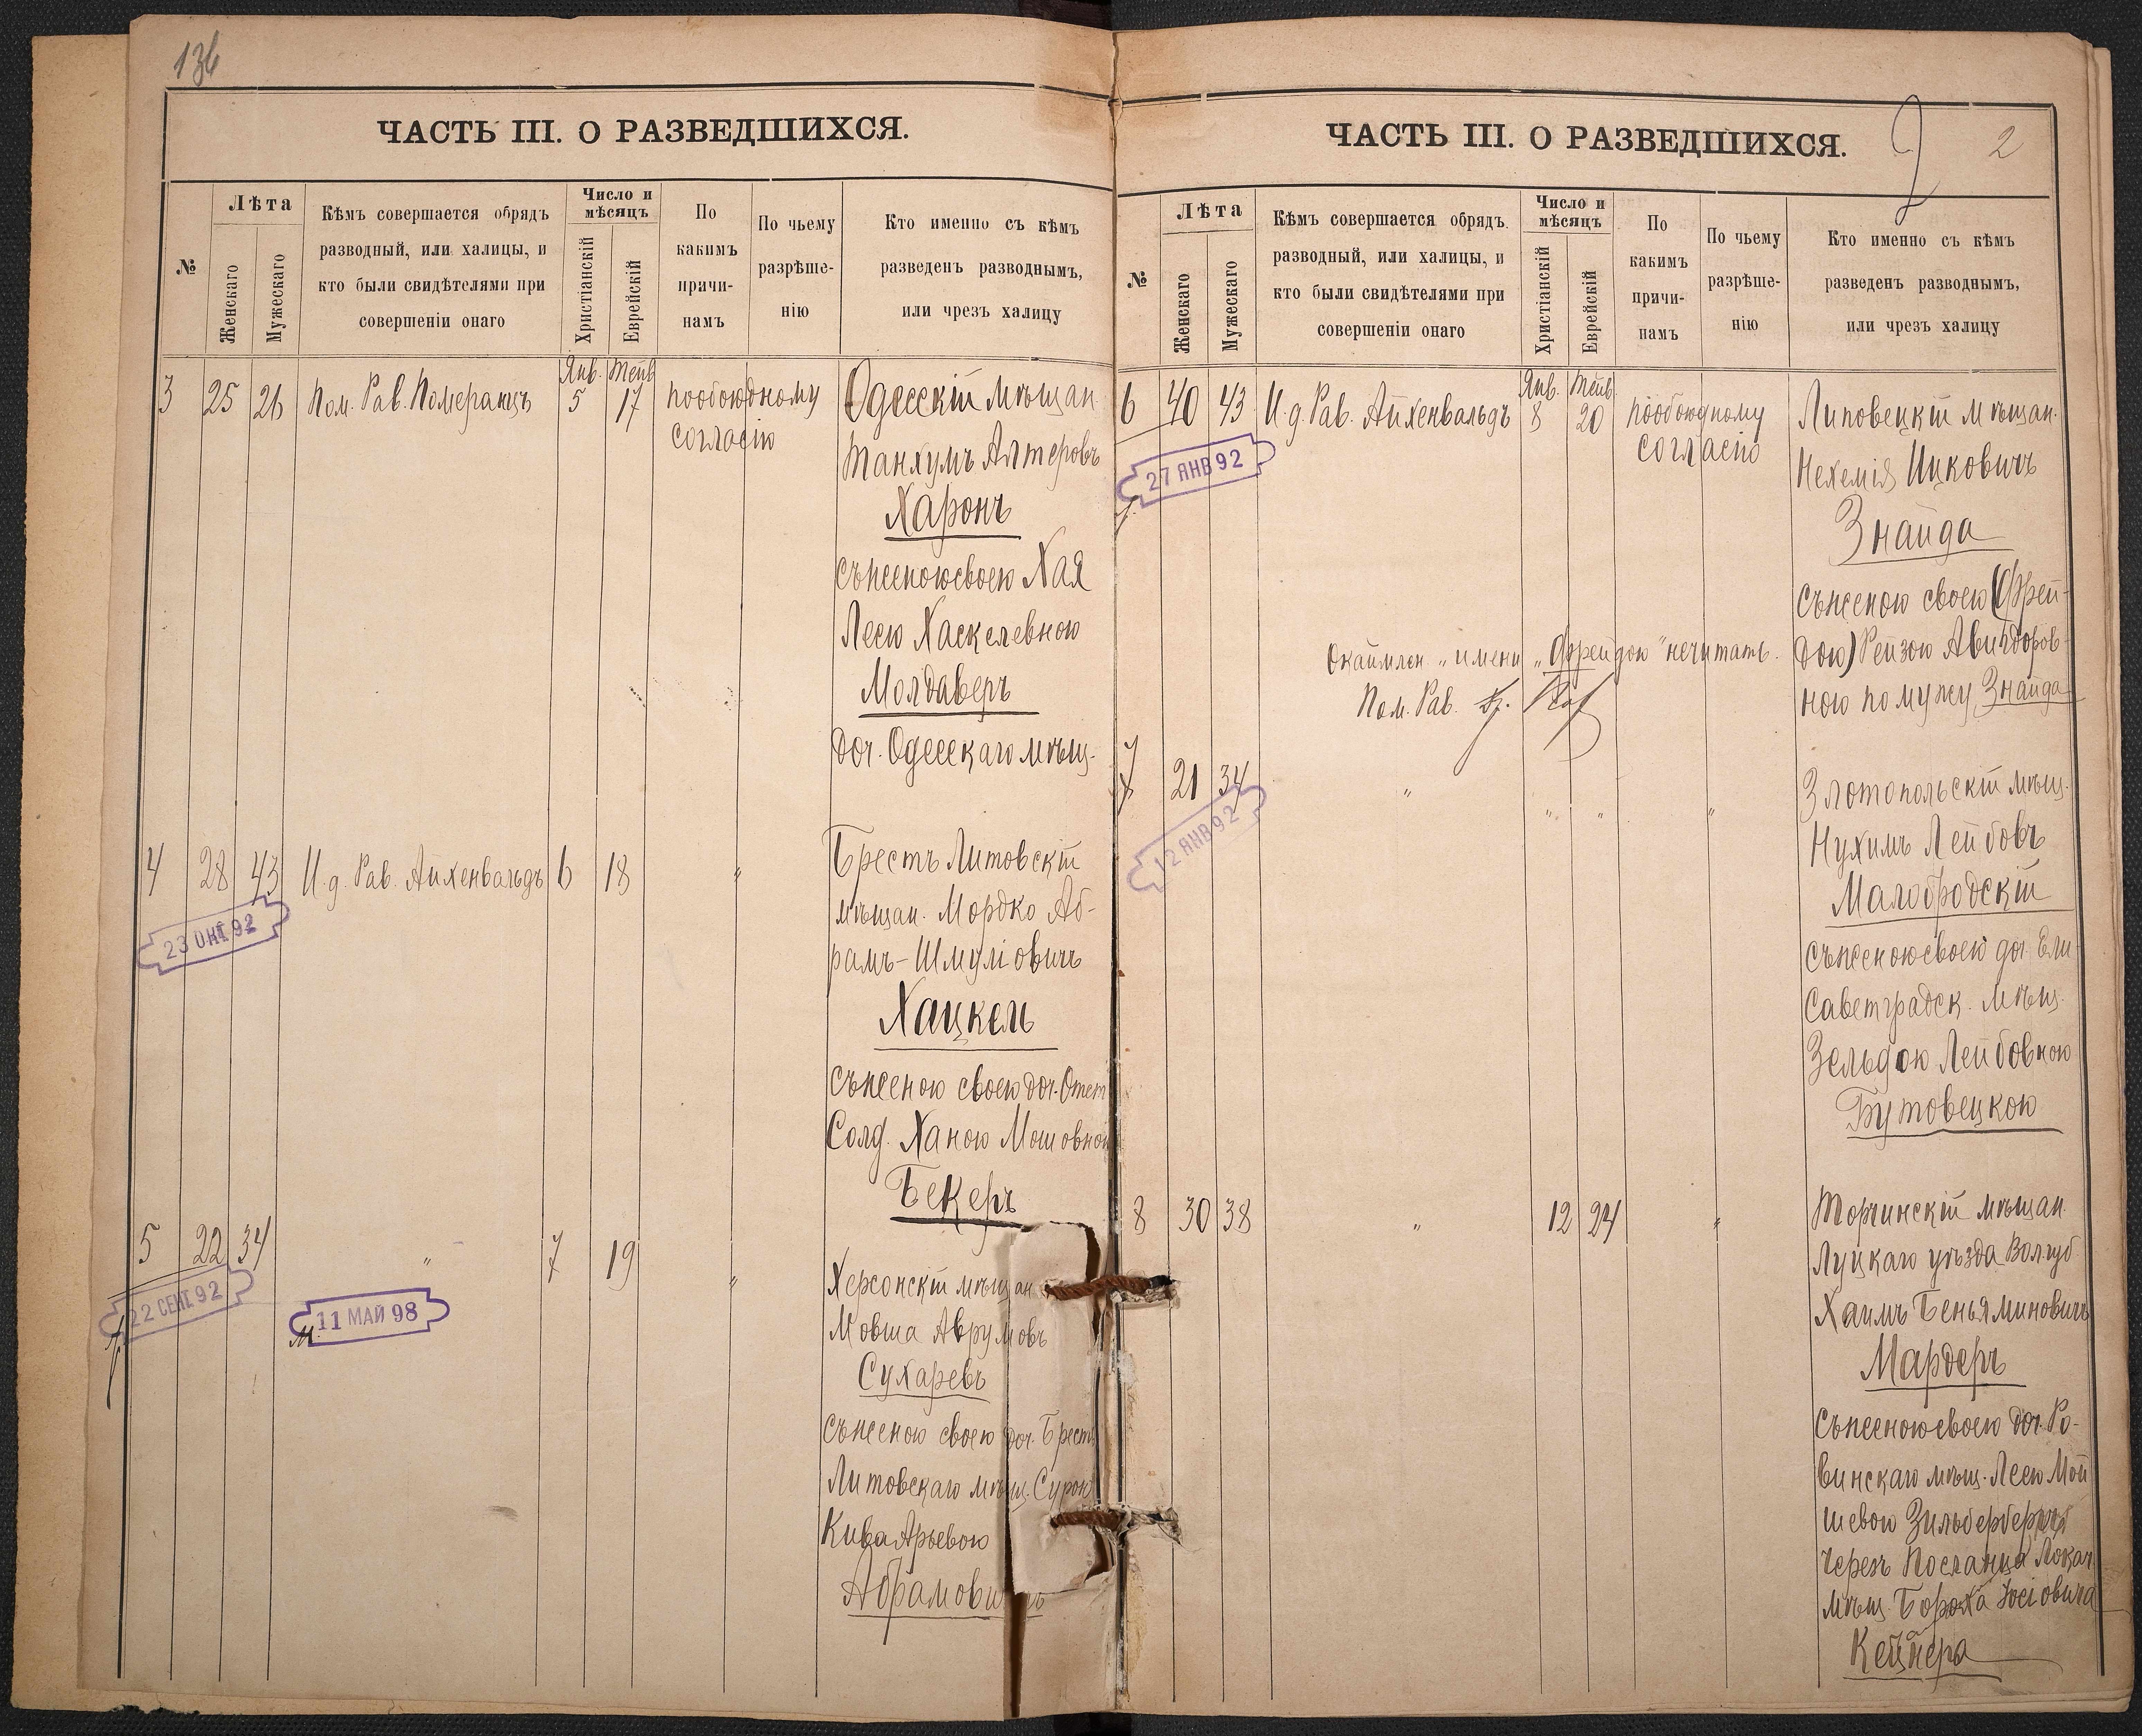 136
ЧАСТЬ III. О РАЗВЕДШИХСЯ.
№
Лѣта
Женскаго
Мужескаго
Кѣмъ совершается обрядъ
разводный, или халицы, и
кто были свидѣтелями при
совершеніи онаго
Число и
мѣсяцъ
Христіанскій
Еврейскій
По
какимъ
причи-
намъ
По чьему
разрѣше-
нію
Кто именно съ кѣмъ
разведенъ разводнымъ,
или чрезъ халицу
Янв. Тейв.
3 25 26 Пом. Рав. Померанцъ 5 17 по обоюдному
согласію
Одесскій мѣщан.
Танхумъ Алтеровъ
Харонъ
съ женою своею Хая
Лею Хаскелевною
Молдаверъ
доч. Одесскаго мѣщ.
4 28 43 И. д. Рав. Айхенвальдъ 6 18 "
23 ОКТ 92
Брестъ Литовскій
мѣщан. Мордко Аб-
рамъ-Шмуліовичъ
Хацкель
съ женою своею доч. Отст.
Солд. Ханою Мошовною
Бекеръ
5 22 34 " 7 19 "
22 СЕНТ 92
11 МАЙ 98
Херсонскій мѣщан
Мовша Аврумовъ
Сухаревъ
съ женою своею доч. Брестъ
Литовскаго мѣщ. Сурою
Кива Арьевою
Абрамовичъ
ЧАСТЬ III. О РАЗВЕДШИХСЯ.
2
2
№
Лѣта
Женскаго
Мужескаго
Кѣмъ совершается обрядъ
разводный, или халицы, и
кто были свидѣтелями при
совершеніи онаго
Число и
мѣсяцъ
Христіанскій
Еврейскій
По
какимъ
причи-
намъ
По чьему
разрѣше-
нію
Кто именно съ кѣмъ
разведенъ разводнымъ,
или чрезъ халицу
Янв. Тейв.
6 40 43 И. д. Рав. Айхенвальдъ 8 20 по обоюдному
согласію
27 ЯНВ 92
Липовецкій мѣщан.
Нехемія Ицковичъ
Знайда
съ женою своею (Фрей-
дою) Рейзою Авигдоров-
ною по мужу Знайда
Окаймлен. „имени „Фрейдою" не читать.
Пом. Рав.
7 21 34 " " " "
12 ЯНВ 92
Златопольскій мѣщ.
Нухимъ Лейбовъ
Малобродскій
съ женою своею доч. Ели-
саветградск. мѣщ.
Зельдою Лейбовною
Бутовецкою
8 30 38 " 12 24 "
Торчинскій мѣщан.
Луцкаго уѣзда Вол. губ.
Хаимъ Беньяминовичъ
Мардеръ
съ женою своею доч. Ро-
винскаго мѣщ. Лею Мой
шевою Зильбербергъ
черезъ Посланца Локач.
мѣщ. Бороха Іосіовича
Кейнера